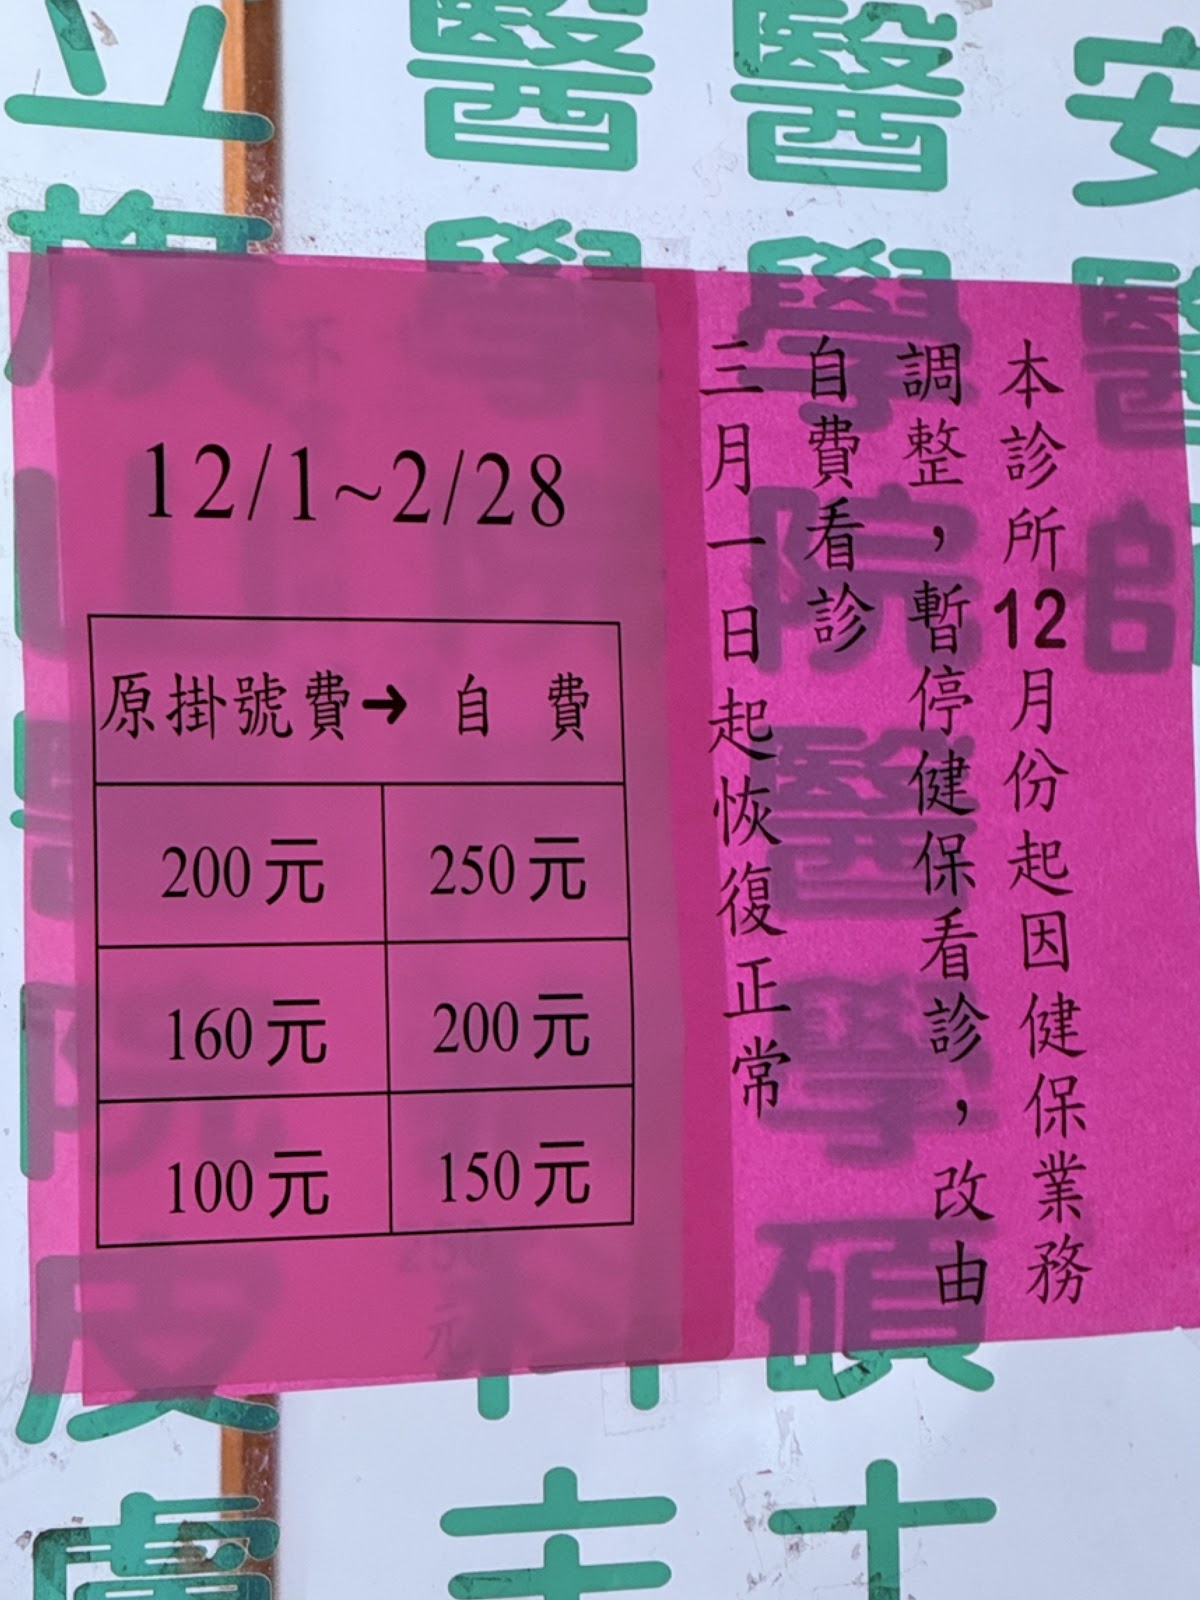 本診所12月份起因健保業務
調整，暫停健保看診，改由
自費看診
三月一日起恢復正常
12/1~2/28
原掛號費→ 自 費
200元 250元
160元 200元
100元 150元
安醫
醫學院醫學碩士
醫學
立旗山醫院皮膚